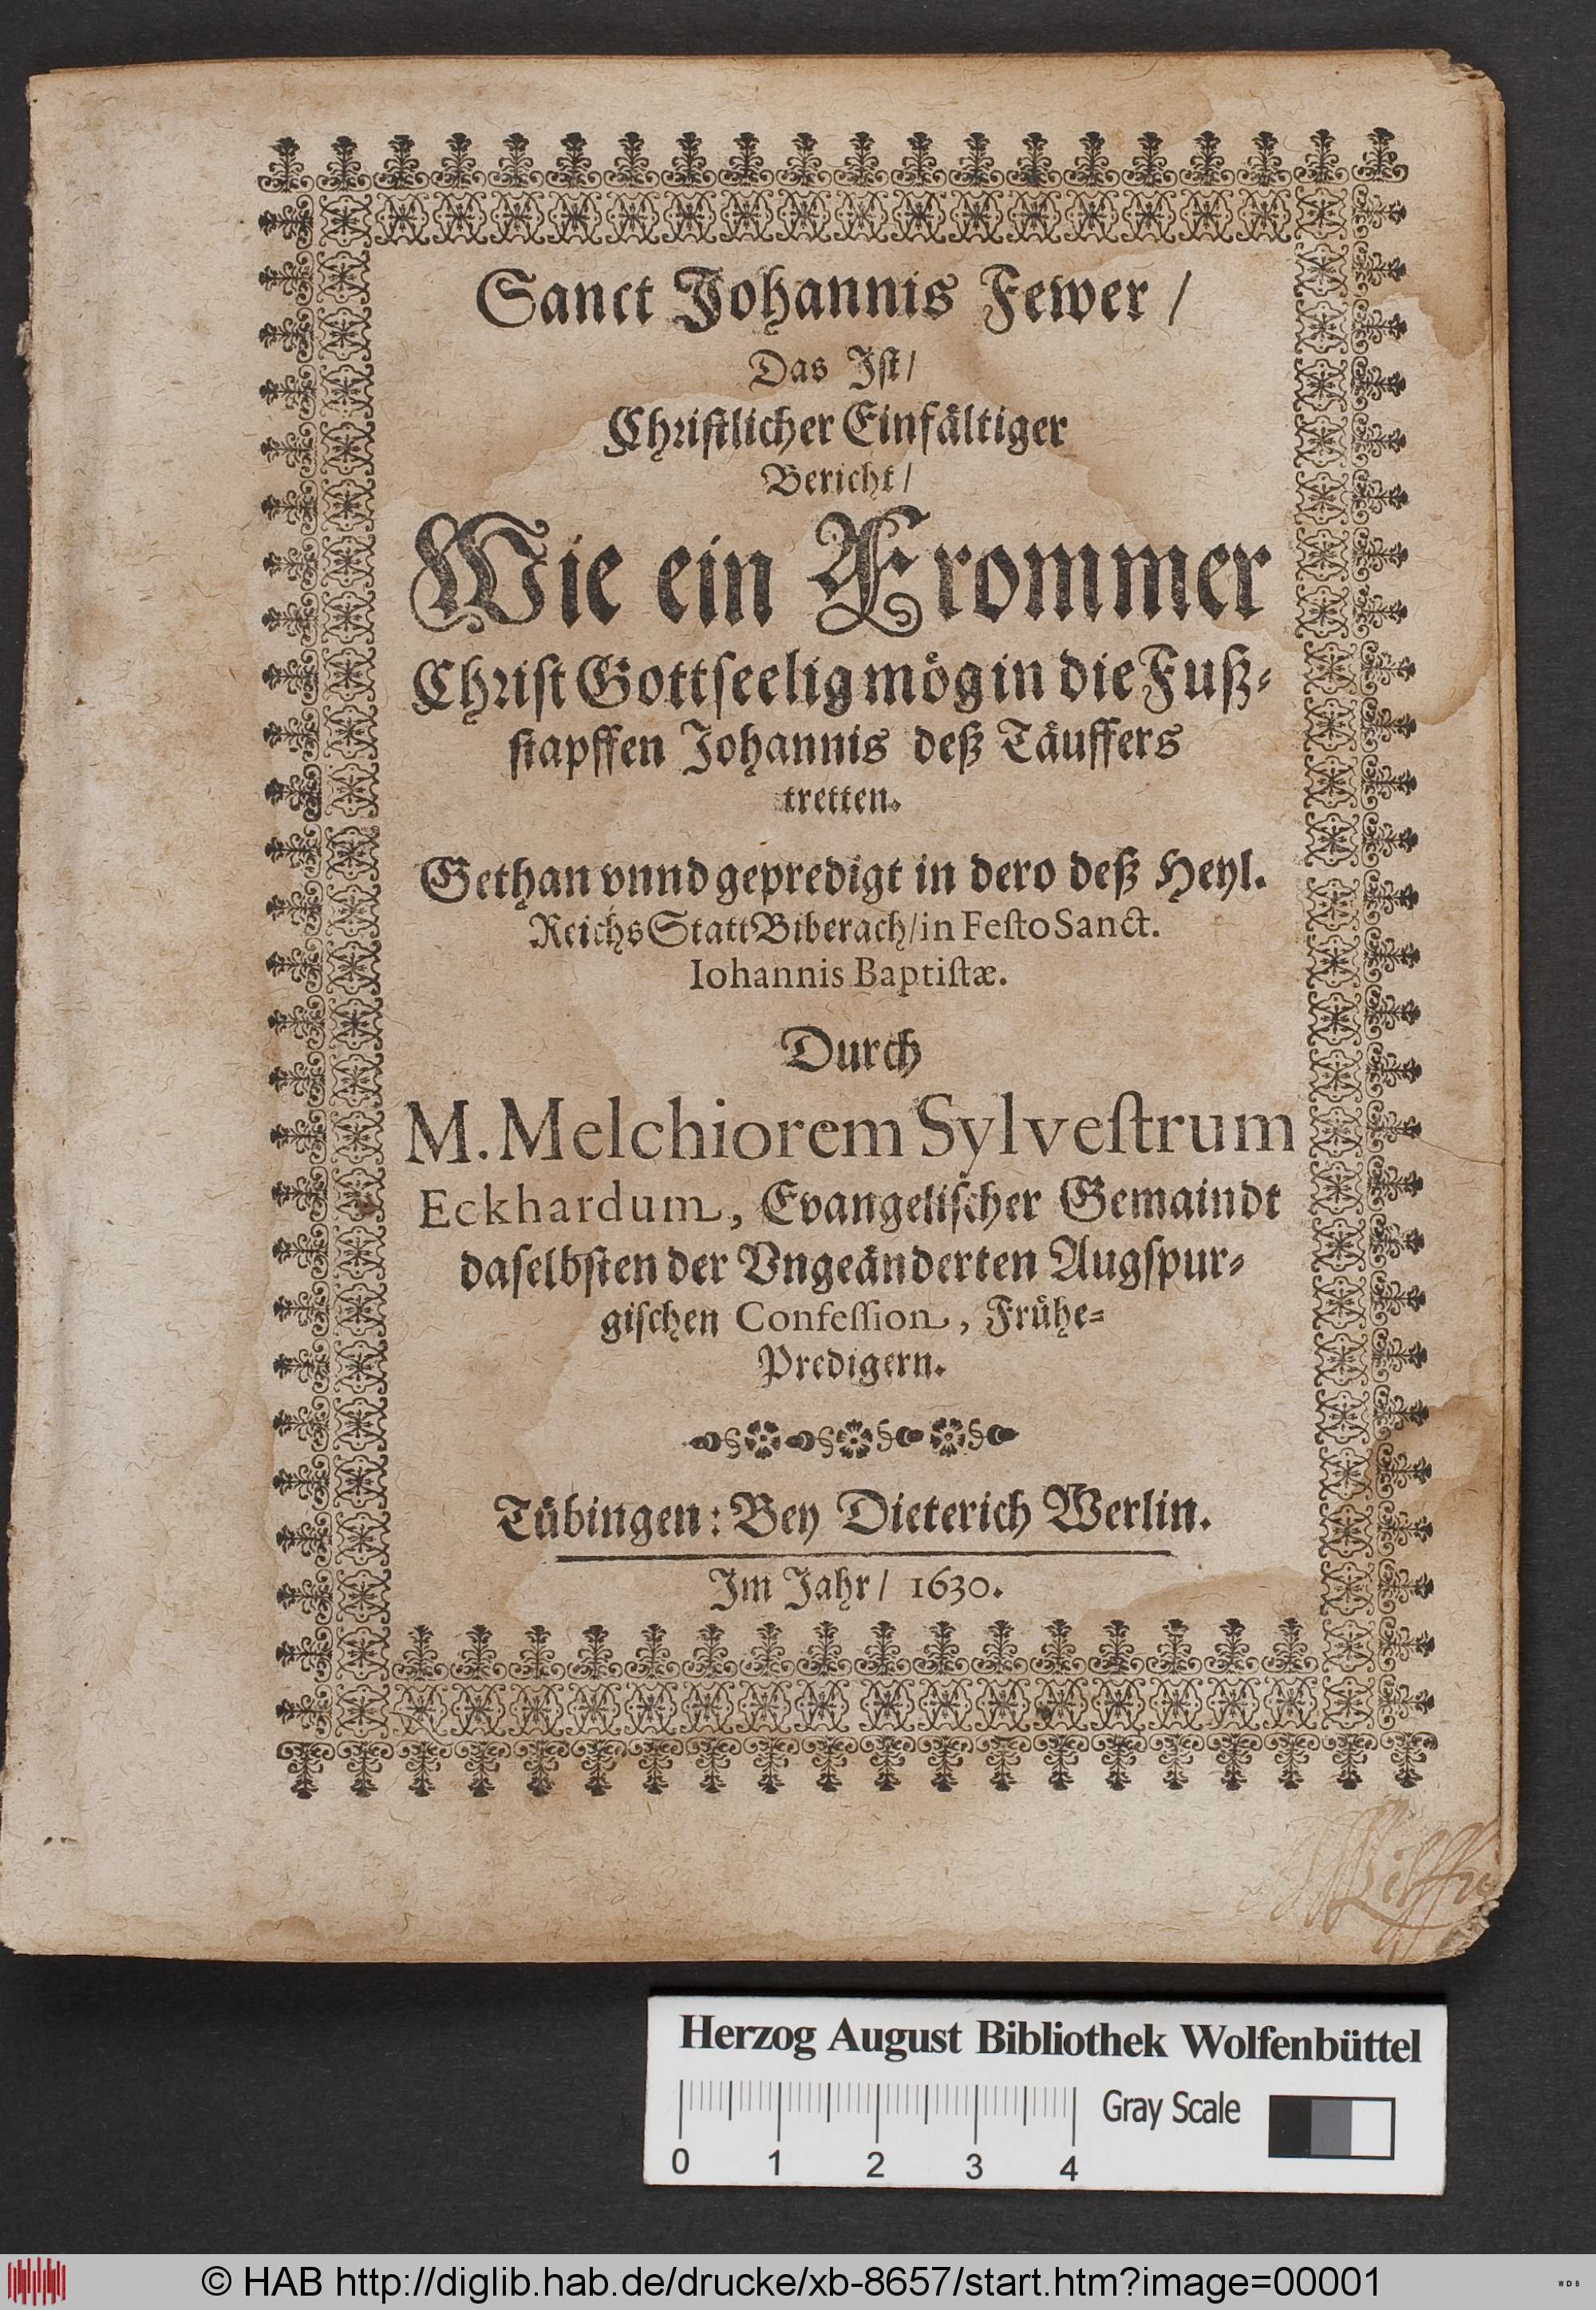 Sanct Johannis Fewer /
Das Iſt /
Chriſtlicher Einfaͤltiger
Bericht /
Wie ein Frommer
Chriſt Gottſeelig moͤg in die Fuß⸗
ſtapffen Johannis deß Taͤuffers
tretten.
Gethan vnnd gepredigt in dero deß Heyl.
Reichs Statt Biberach / in Feſto Sanct.
Iohannis Baptiſtæ.
Durch
M. Melchiorem Sylveſtrum
Eckhardum, Evangeliſcher Gemaindt
daſelbſten der Vngeaͤnderten Augſpur⸗
giſchen Confeſſion, Fruͤhe⸗
Predigern.
Tuͤbingen: Bey Dieterich Werlin.
Im Jahr / 1630.
Herzog August Bibliothek Wolfenbüttel
Gray Scale
0 1 2 3 4
© HAB http://diglib.hab.de/drucke/xb-8657/start.htm?image=00001
WDB